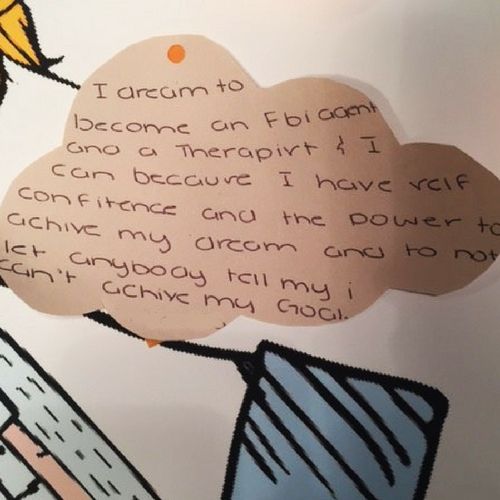 I dream to
become an Fbi agent
and a Therapist & I
can because I have self
confitence and the power to
achive my dream and to not
let anybody tell my i
can't achive my Goal.